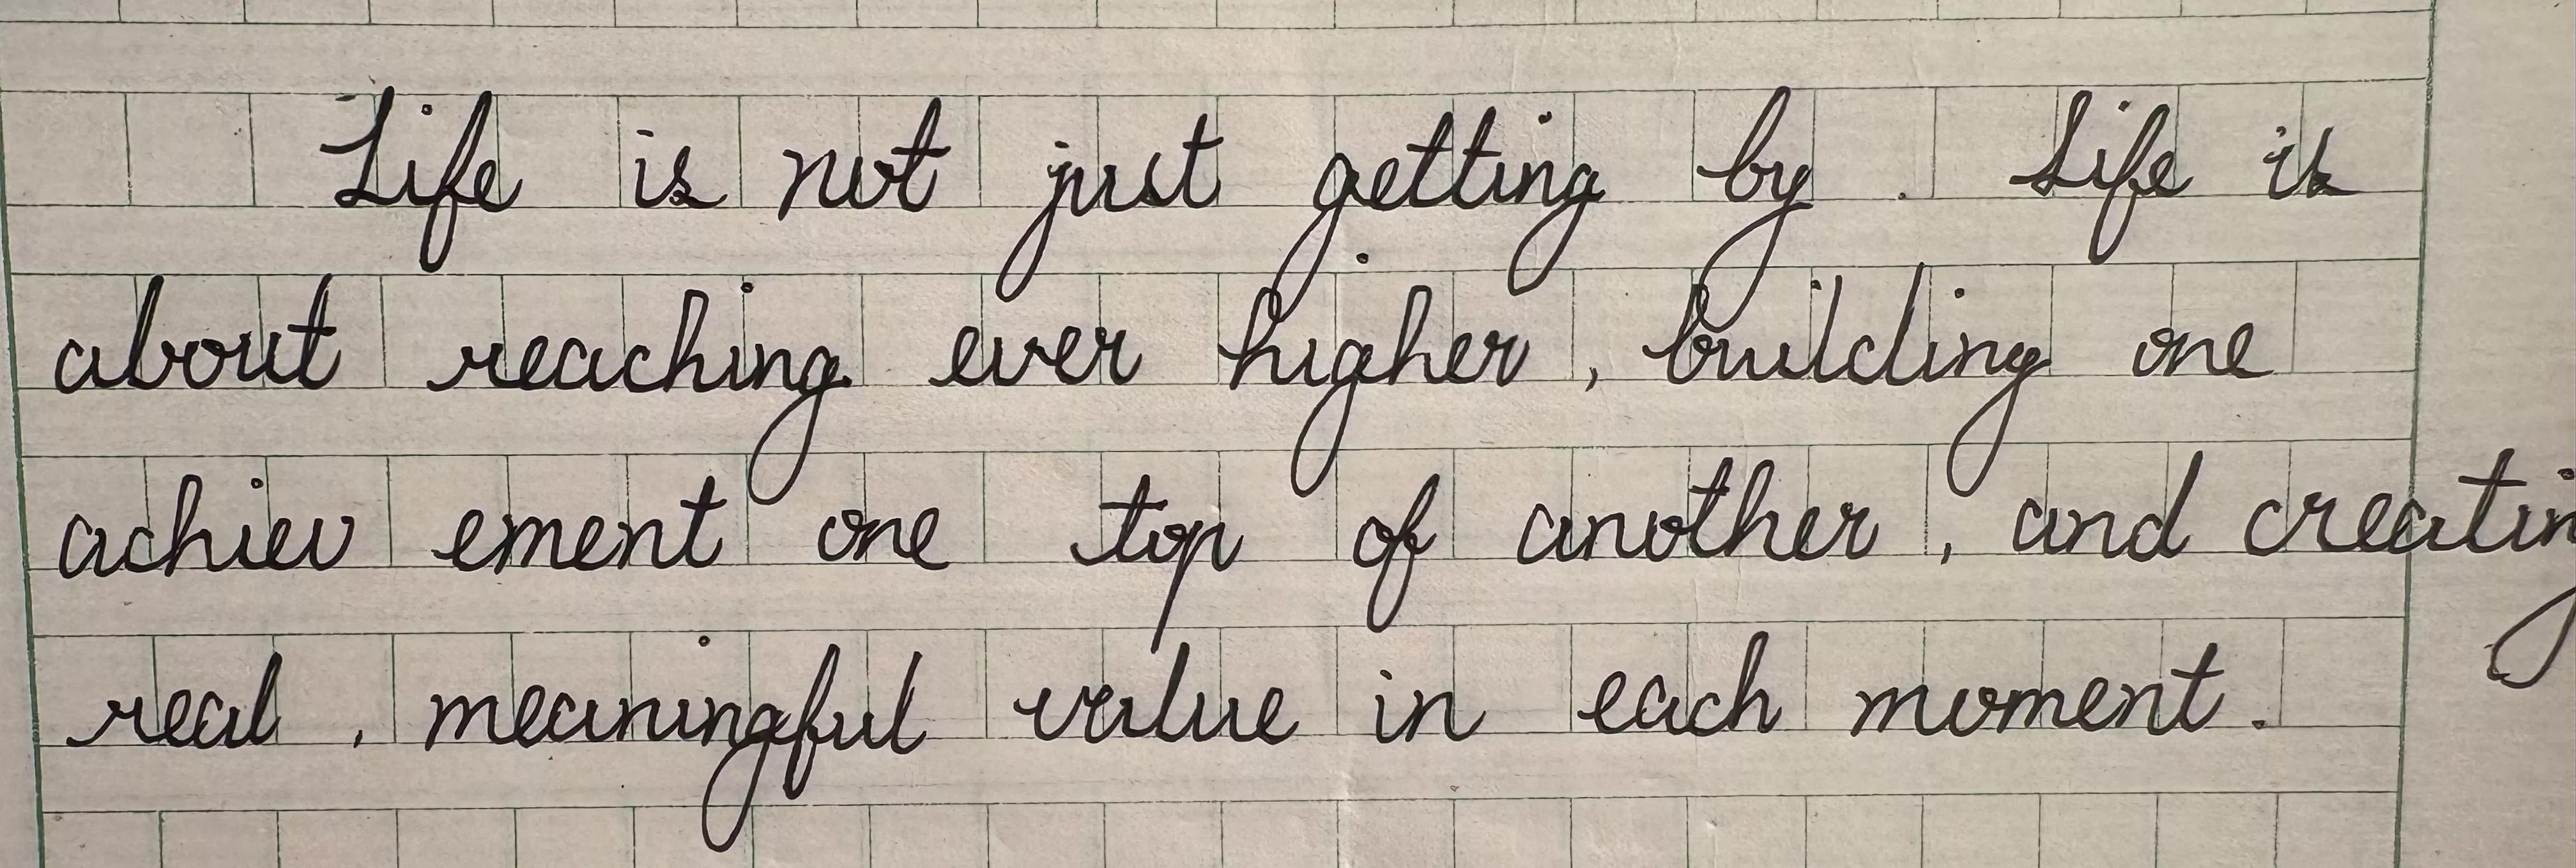 Life is not just getting by . Life is
about reaching ever higher , building one
achiev ement one top of another , and creating
real , meaningful value in each moment .